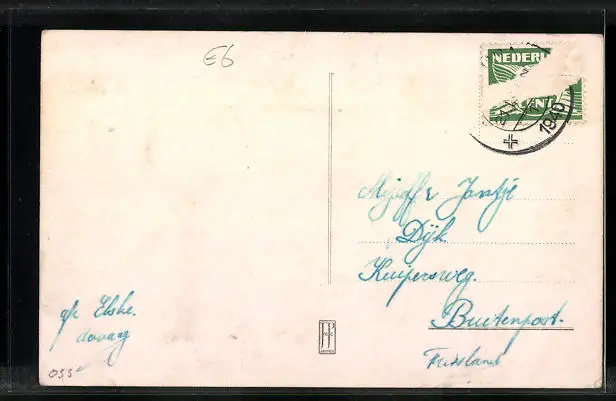 E6
NEDERL
CENT
1940
Mejuffr Jantje
Dijk
Kuipersweg.
Buitenpost.
Friesland
Elske.
055